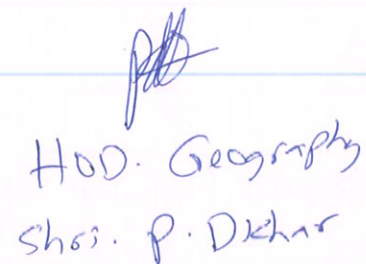 HOD. Geography
Shri. P. Dkhar